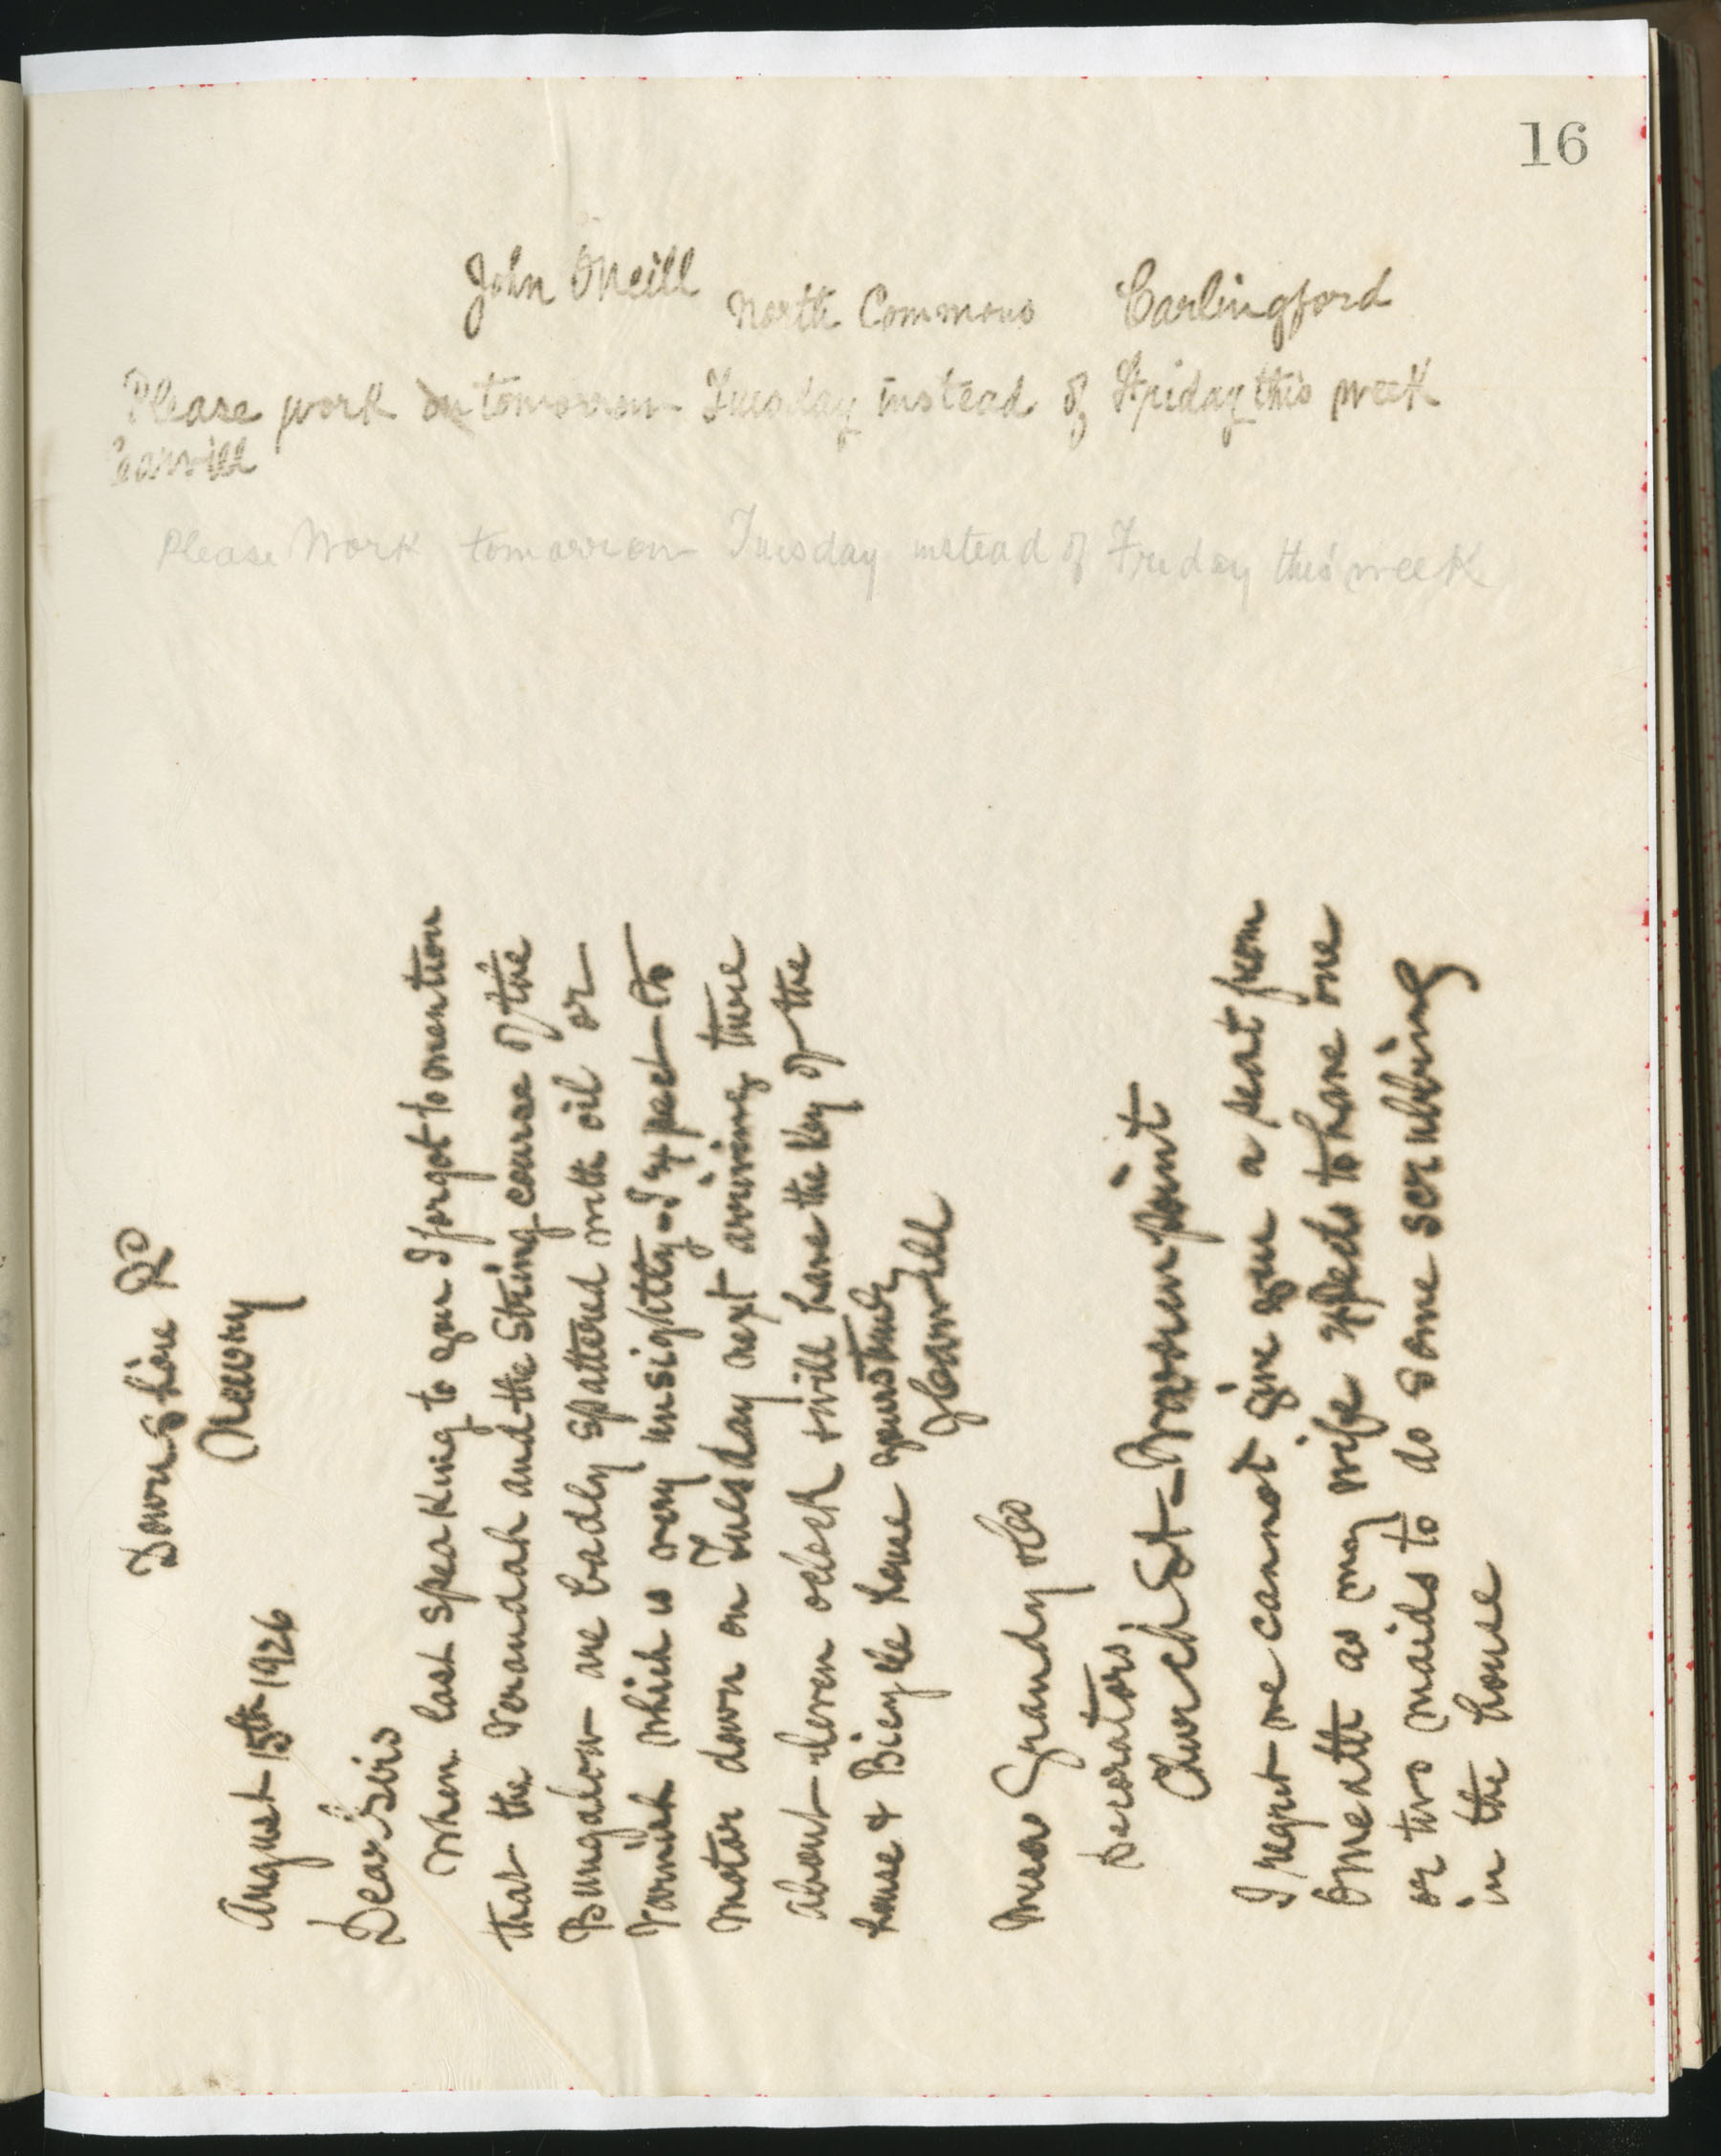 16
John ONeill North Commons Carlingford
Please work on tomorrow Tuesday instead of Friday this week
Carvill
Please Work tomorrow Tuesday instead of Friday this week
Downshire Rd
Newry
August 15th 1926
Dear Sirs
When last speaking to you I forgot to mention
that the Verandah and the String course of the
Bungalow are badly spattered with oil or
Varnish which is very unsightly - I expect to
motor down on Tuesday next arriving there
about eleven oclock & will have the key of the
house & Bicycle house yours truly
JCarvill
Messrs Grandy & Co
Decorators
Church St - Warrenpoint
I regret we cannot give you a seat from
Omeath as my wife expects to have one
or two maids to do some scrubbing
in the house